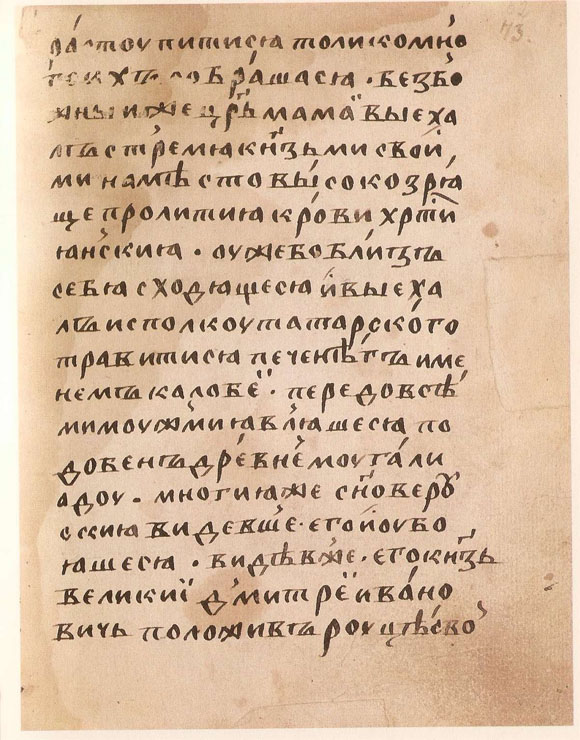 ра́ стоупитися толикомно̑
безбо
жныи иже цр҃ь мамаи выеха
лъ с тремя кн҃зьми свои
ми на мѣсто высоко зря
ще пролития кро́ви хр҃ти
ян̑ския · оуже бо бли́зъ
себя сходящеся и выеха
лъ ис полкоу татарско́го
травитися печенѣгъ име
немъ калове̑и · передо всѣ
ми моужми являшеся по
добенъ дре́внемоу гали
адоу · многия же сн҃ове роу
сския видевше · его и оубо
яшеся · видѣвже · его кн҃зь
великиї дмитреї ива́но
вичь положивъ роу цѣ сво